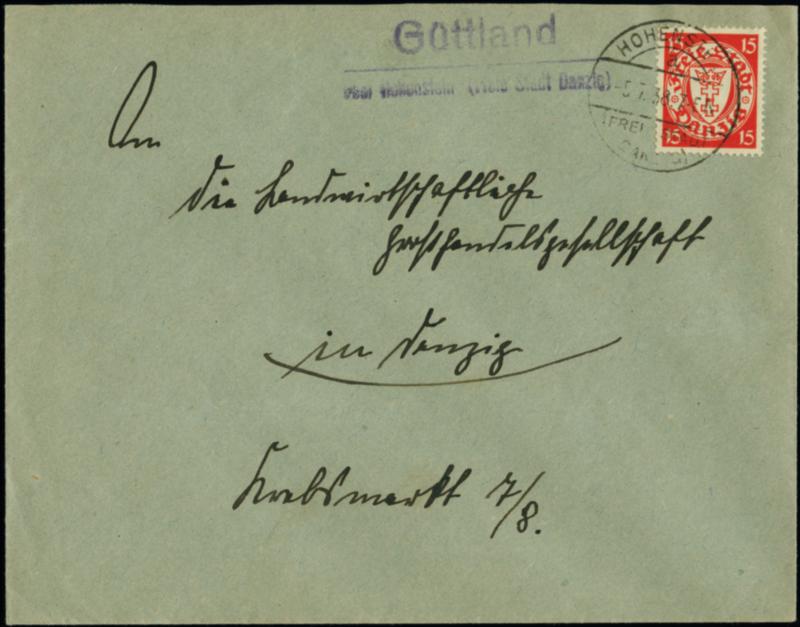 Güttland
über Hohenstein (Freie Stadt Danzig)
HOHENS
5.7.38
(FREI
15
Freie Stadt
Danzig
15 15
An
die Landwirtschaftliche
Großhandelsgesellschaft
in Danzig
Krebsmarkt 7/8.